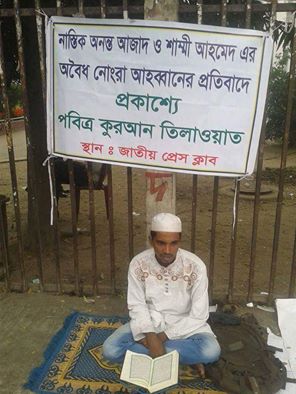 নাস্তিক অনন্ত আজাদ ও শাম্মী আহমেদ এর
অবৈধ নোংরা আহব্বানের প্রতিবাদে
প্রকাশ্যে
পবিত্র কুরআন তিলাওয়াত
স্থান : জাতীয় প্রেস ক্লাব